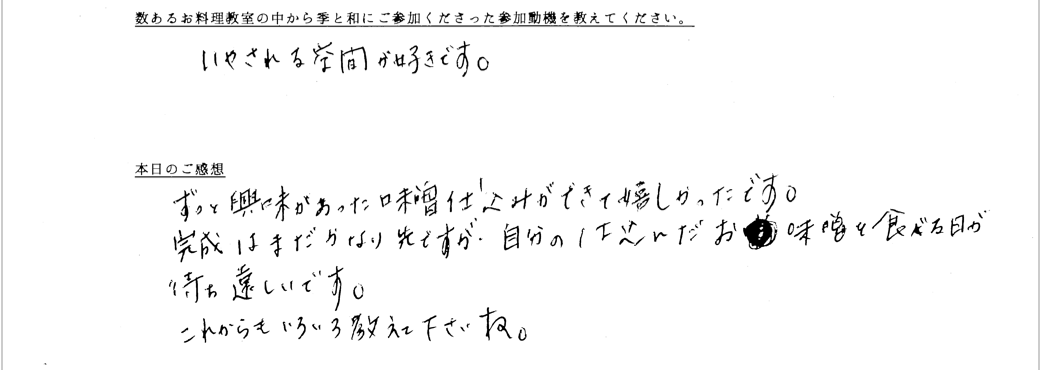 数あるお料理教室の中から季と和にご参加くださった参加動機を教えてください。
いやされる空間が好きです。
本日のご感想
ずっと興味があった味噌仕込みができて嬉しかったです。
完成はまだかなり先ですが、自分の仕込んだお味噌を食べる日が
待ち遠しいです。
これからもいろいろ教えて下さいね。